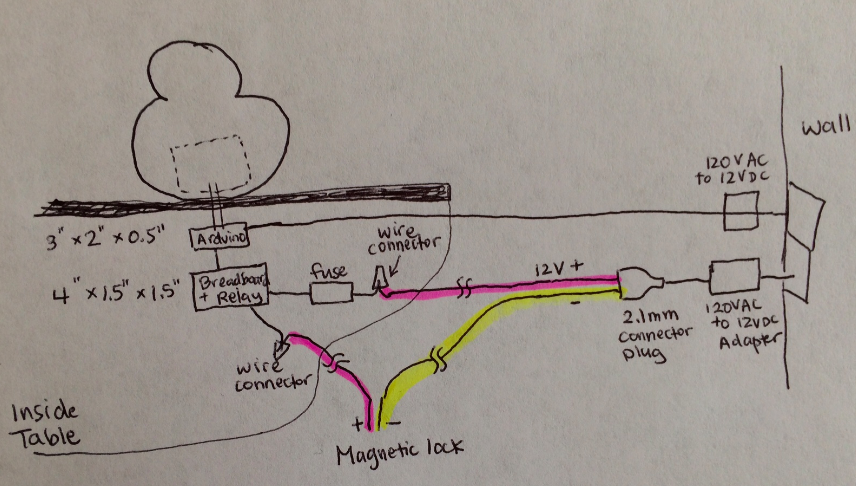 Wall
120VAC
to 12VDC
3" x 2" x 0.5"
Arduino
wire
connector
4" x 1.5" x 1.5"
Breadboard
+ Relay
fuse
12V +
-
2.1mm
connector
plug
120VAC
to 12VDC
Adapter
wire
connector
Inside
Table
+ -
Magnetic lock